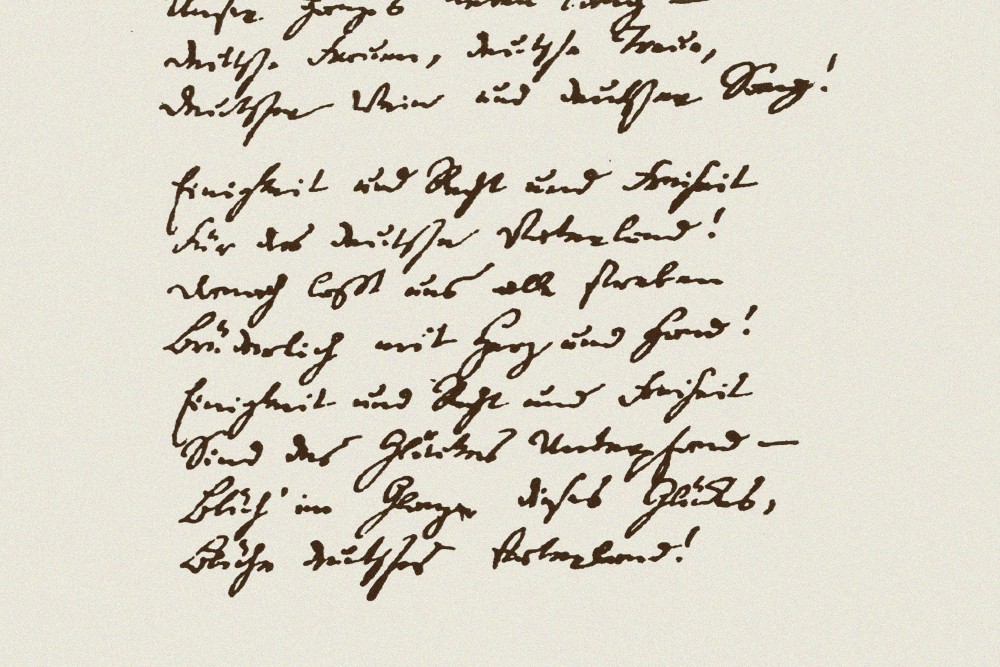 Unser ganzes Leben lang —
deutsche Frauen, deutsche Treue,
deutscher Wein und deutscher Sang!
Einigkeit und Recht und Freiheit
Für das deutsche Vaterland!
danach lasst uns alle streben
Brüderlich mit Herz und Hand!
Einigkeit und Recht und Freiheit
Sind des Glückes Unterpfand —
Blüh' im Glanze dieses Glückes,
Blühe deutsches Vaterland!